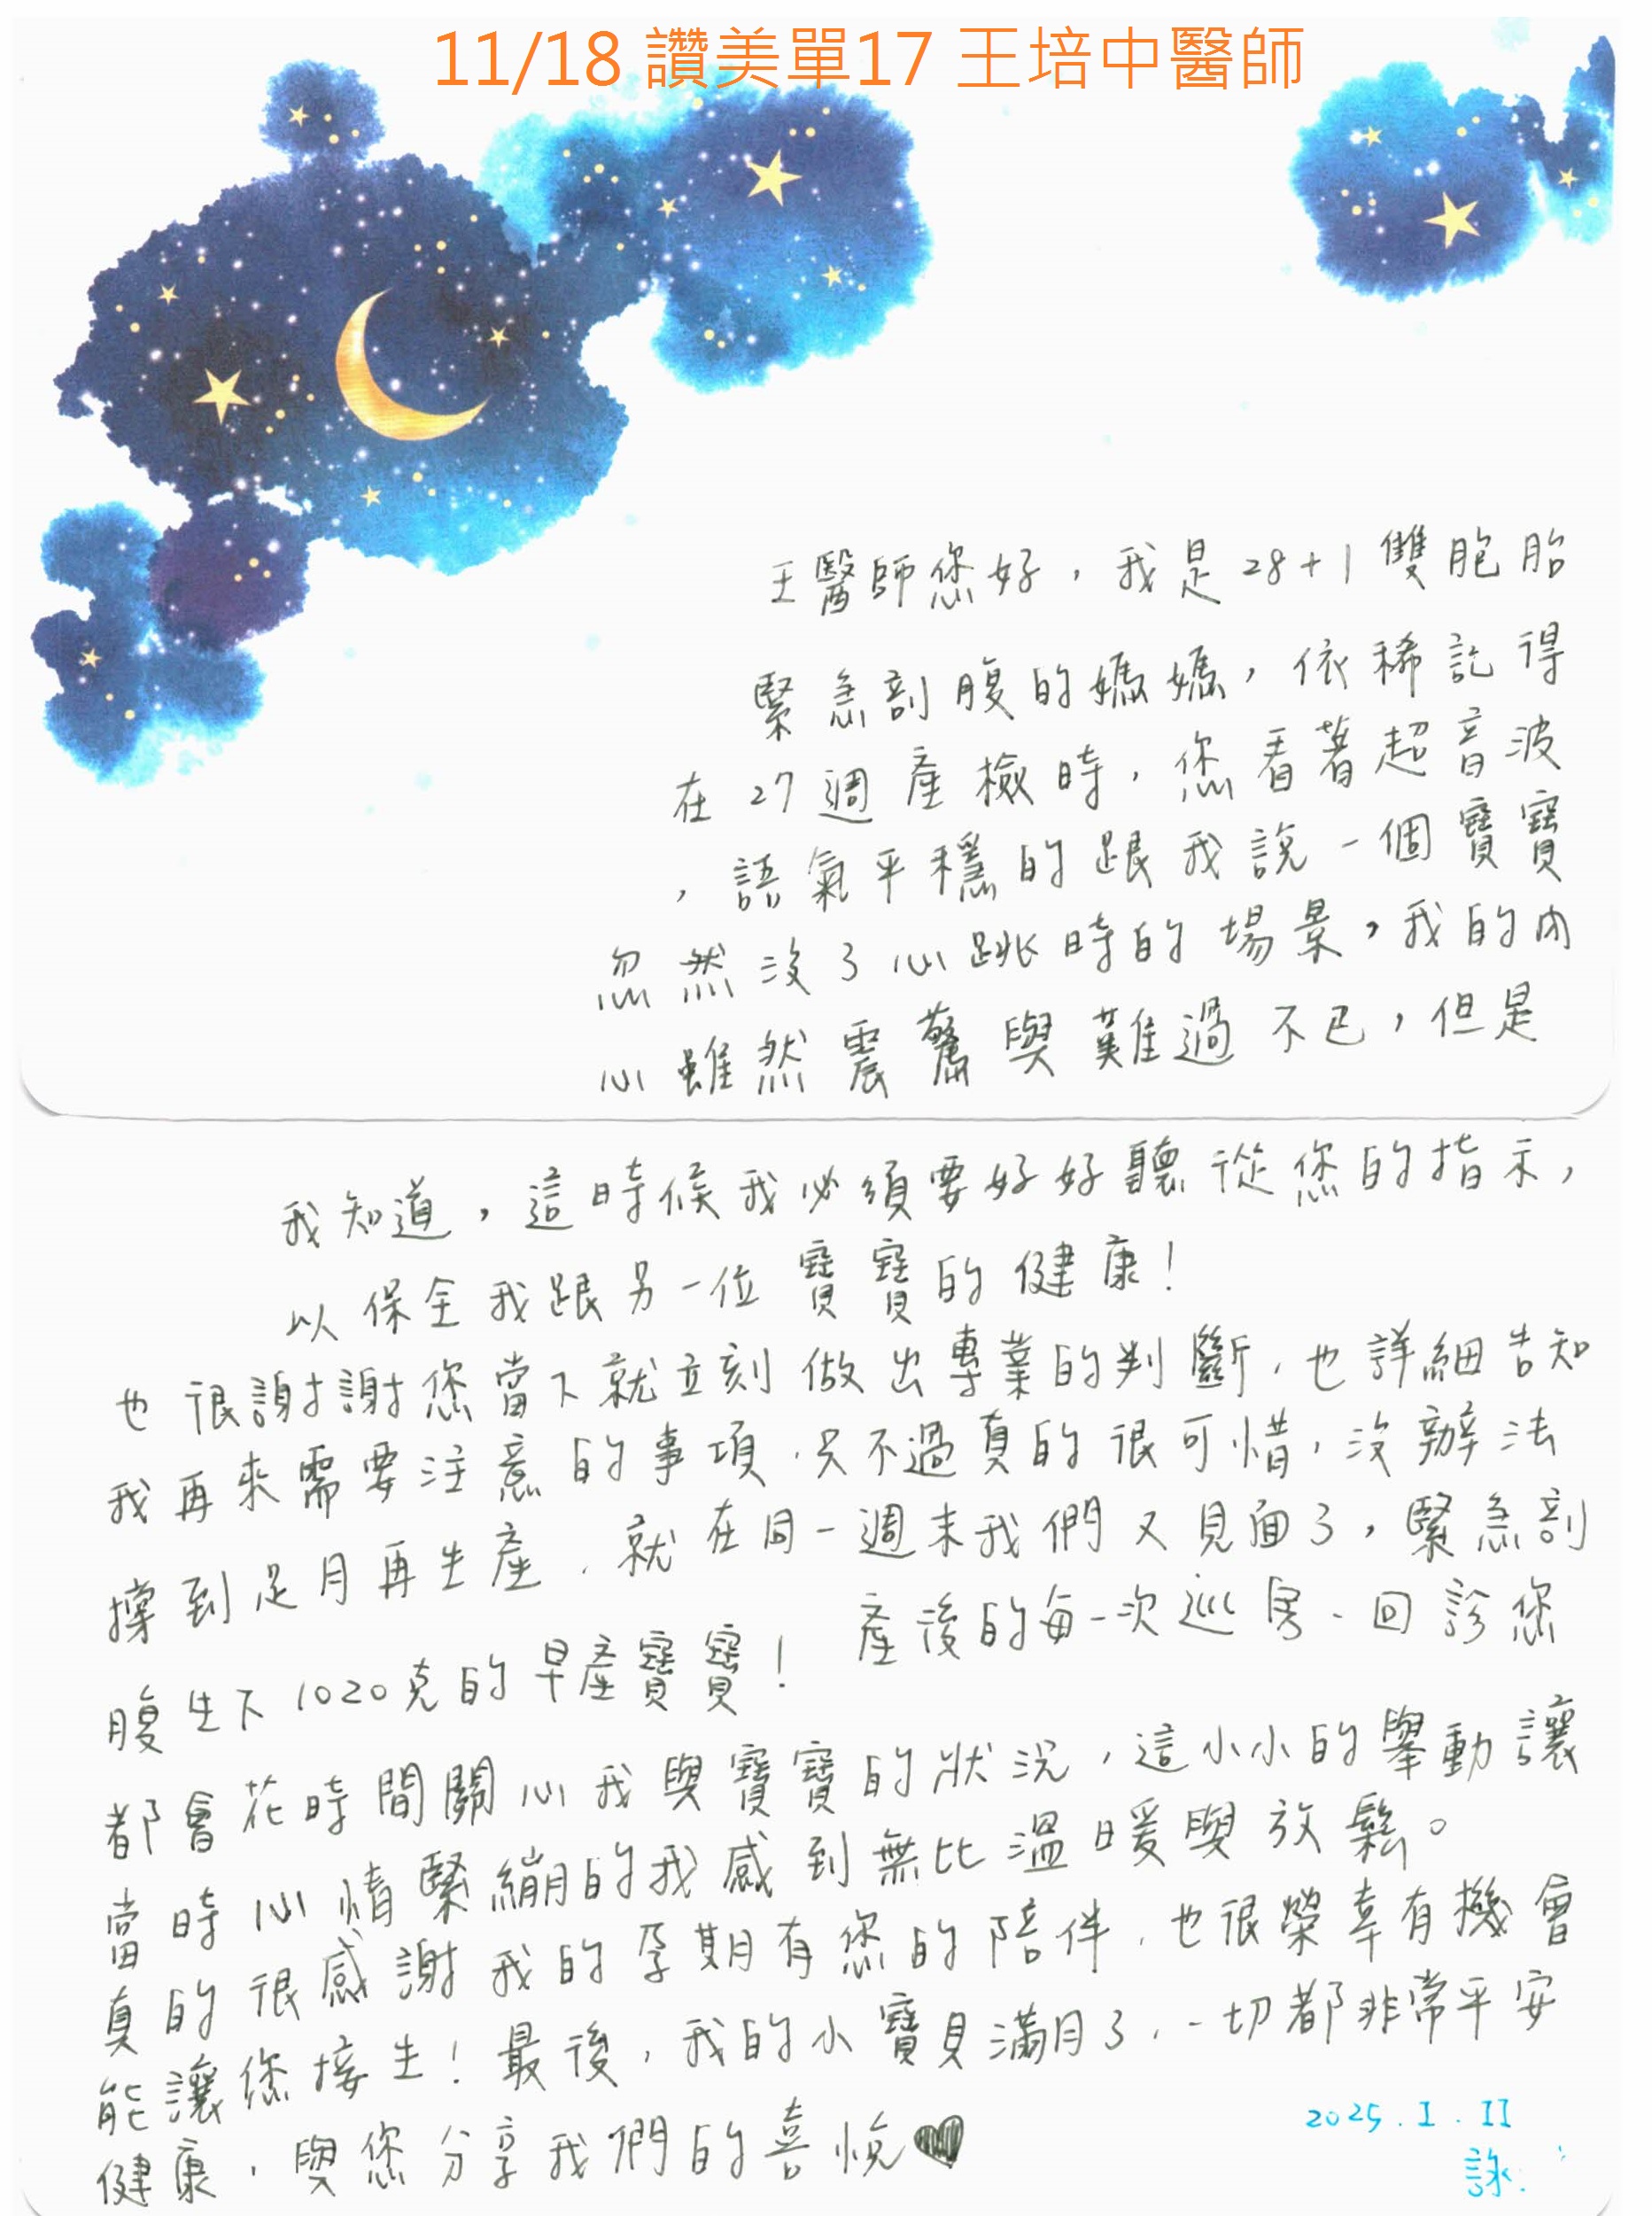 11/18 讚美單17 王培中醫師
王醫師您好，我是28+1雙胞胎
緊急剖腹的媽媽，依稀記得
在27週產檢時，您看著超音波
，語氣平穩的跟我說一個寶寶
忽然沒了心跳時的場景，我的內
心雖然震驚與難過不已，但是
我知道，這時候我必須要好好聽從您的指示，
以保全我跟另一位寶寶的健康！
也很謝謝您當下就立刻做出專業的判斷，也詳細告知
我再來需要注意的事項，只不過真的很可惜，沒辦法
撐到足月再生產，就在同一週末我們又見面了，緊急剖
腹生下1020克的早產寶寶！ 產後的每一次巡房、回診您
都會花時間關心我與寶寶的狀況，這小小的舉動讓
當時心情緊繃的我感到無比溫暖與放鬆。
真的很感謝我的孕期有您的陪伴，也很榮幸有機會
能讓您接生！最後，我的小寶貝滿月了，一切都非常平安
健康，與您分享我們的喜悅♥
2025.I.II
詠